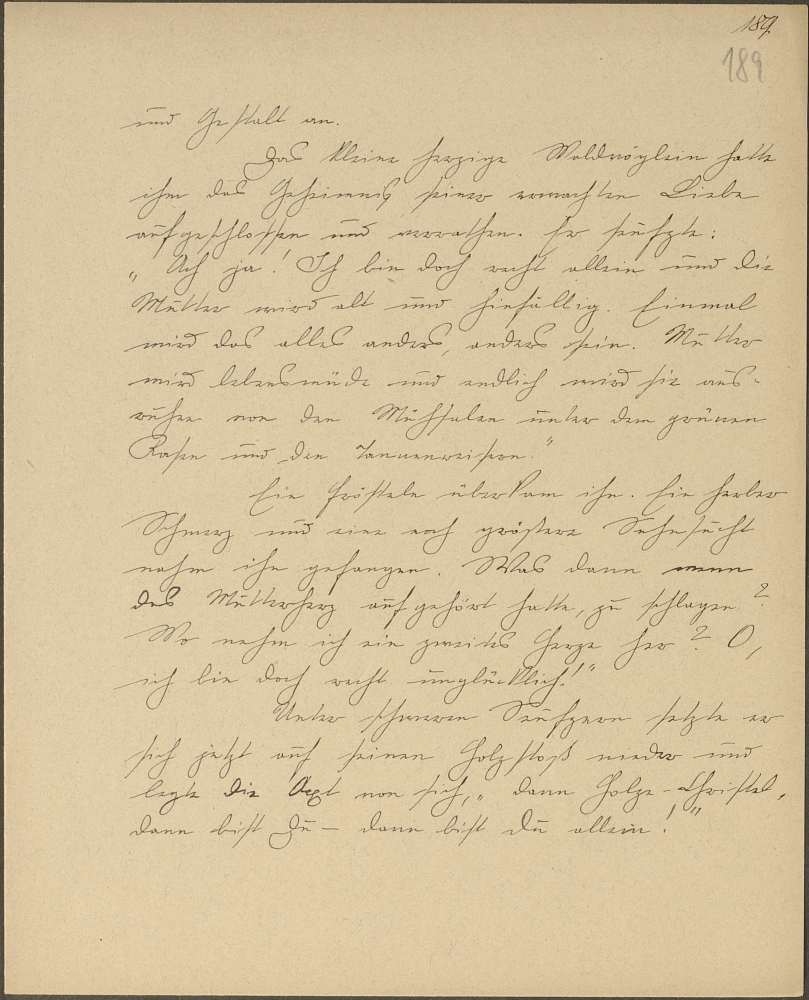 189.
189
und Gestalt an.
Das kleine herzige Waldvöglein hatte
ihm das Geheimnis seiner erwachten Liebe
aufgeschlossen und verrathen. Er seufzte:
„Ach ja! Ich bin doch recht allein und die
Mutter wird alt und hinfällig. Einmal
wird das alles anders, anders sein. Mutter
wird lebensmüde und endlich wird sie aus-
ruhen von den Mühsalen unter dem grünen
Rasen und den Tannenreisern."
Ein Frösteln überkam ihn. Ein herber
Schmerz und eine noch größere Sehnsucht
nahm ihn gefangen. Was dann wenn
das Mutterherz aufgehört hatte, zu schlagen?
Wo nehm ich ein zweites Herze her? O,
ich bin doch recht unglücklich!"
Unter schweren Seufzern setzte er
sich jetzt auf seinen Holzstoß nieder und
legte die Axt von sich, „dann Holze-Christel,
dann bist Du – dann bist Du allein!"